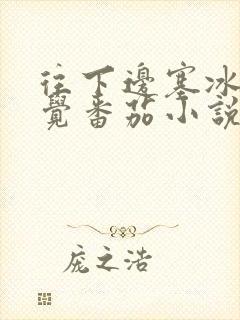 往下邊塞冰
覺番茄小說
庞之浩